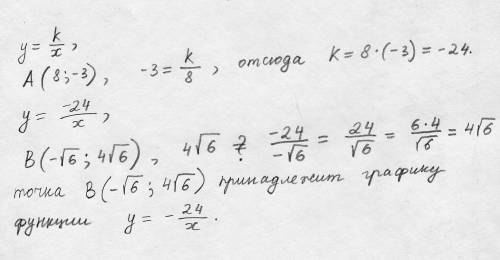 y = k/x ,
A(8; -3) , -3 = k/8 , отсюда K = 8·(-3) = -24.
y = -24/x ,
B(-√6 ; 4√6) , 4√6 ? -24/-√6 = 24/√6 = 6·4/√6 = 4√6
точка B(-√6 ; 4√6) принадлежит графику
функции y = -24/x .